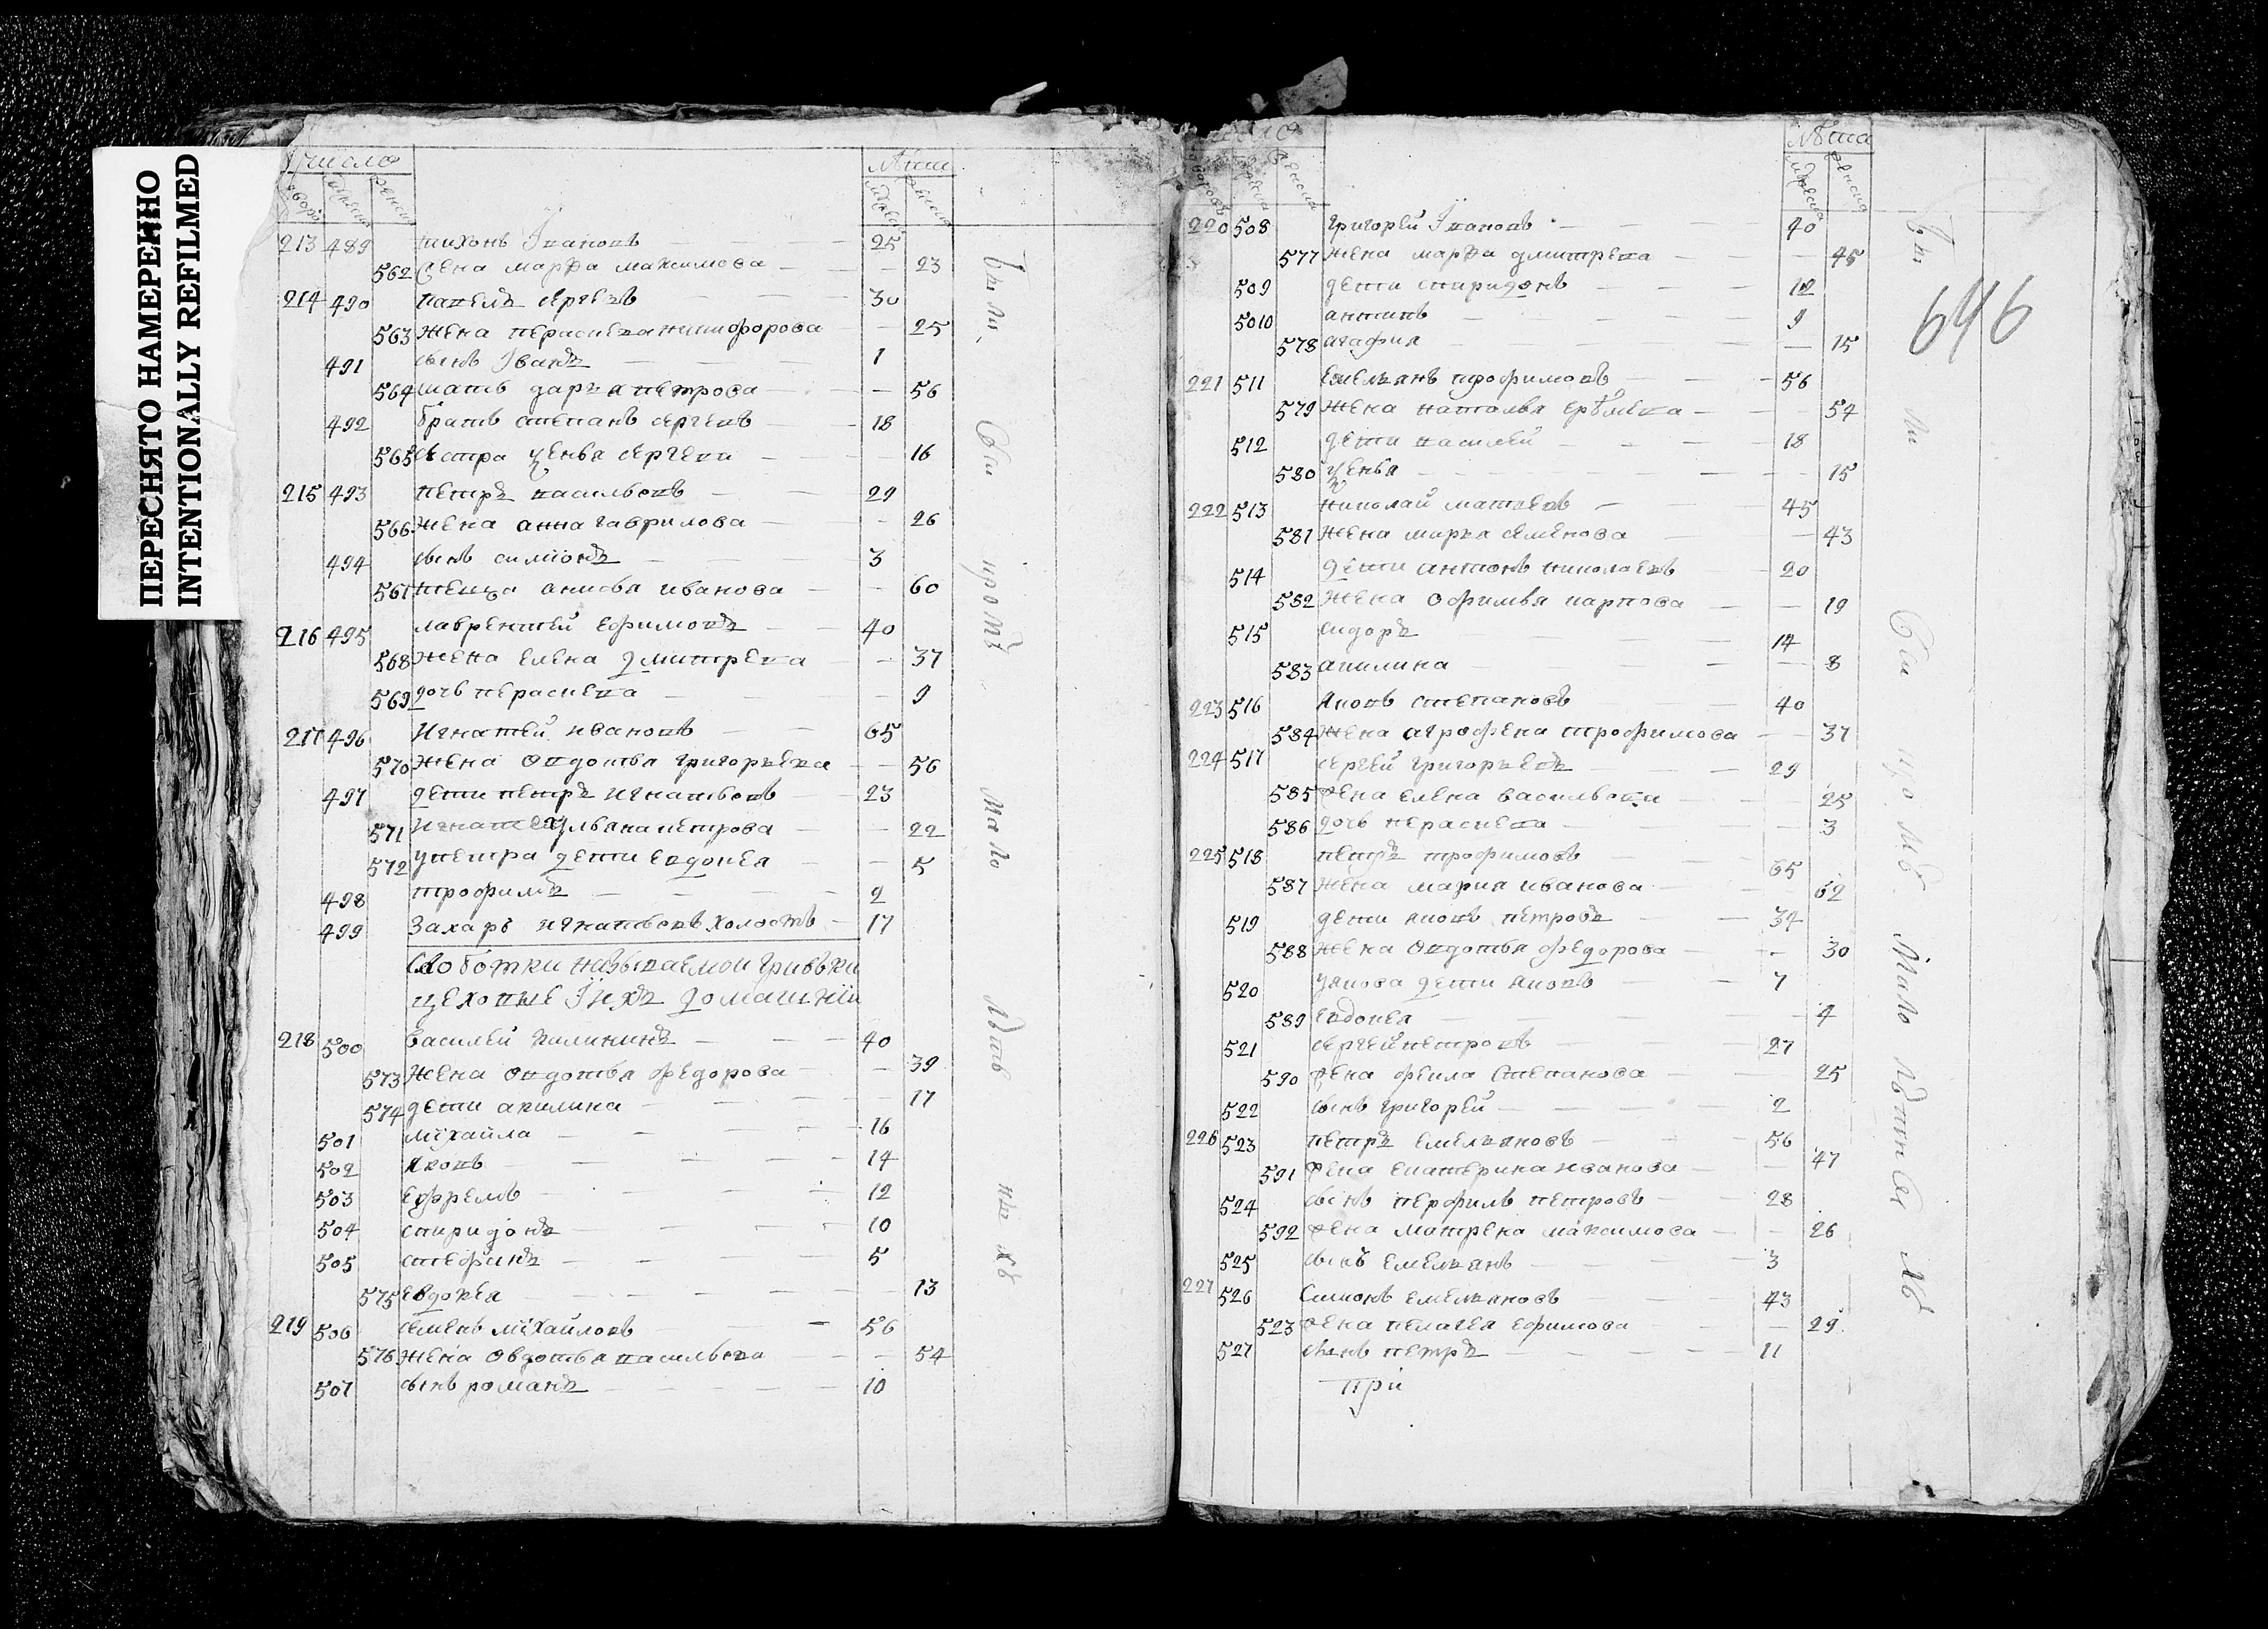 ПЕРЕСНЯТО НАМЕРЕННО
INTENTIONALLY REFILMED
Число Лѣта
213 489 тихонъ Iвановъ 25
562 жена марфа максимова 23
214 490 павелъ сергѣевъ 30
563 жена параскева никифорова 25
491 сынъ Iванъ 1
564 мать даръя петрова 56
492 братъ степанъ сергеевъ 18
565 сестра сергеева 16
215 493 петръ васильевъ 29
566 жена анна гаврилова 26
494 сынъ симионъ 3
567 теща анисья иванова 60
216 495 лаврентей ефимовъ 40
568 жена елена дмитрева 37
569 дочь пераскева 9
217 496 Игнатей ивановъ 65
570 жена овдотья григоръева 56
497 дети петръ игнатьевъ 23
571 ульяна петрова 22
572 упетра дети евдокея 5
498 трофимъ 2
499 Захаръ игнатьевъ холостъ 17
Слоботки называемои гривъки
цеховые Iихъ домашнïи
218 500 Василей калининъ 40
573 жена овдотья федорова 39
574 дети акилина 17
501 мïхайла 16
502 яковъ 14
503 ефремъ 12
504 спиридонъ 10
505 стефанъ 5
575 евдокея 13
219 506 семенъ мïхайловъ 56
576 жена овдотья васильева 54
507 сынъ романъ 10
Были Ѳси протъ Мало Лѣт ныхъ
Лѣта
646
220 508 григорей Iвановъ 40
577 жена марфа дмитрева 45
509 дети спиридонъ 12
5010 антипъ 9
578 агафия 15
221 511 емельянъ трофимовъ 56
579 жена наталья еремеева 54
512 дети василей 18
580 15
222 513 николай матвеевъ 45
581 жена маръя семенова 43
514 дети антонъ николаевъ 20
582 жена офимья карпова 19
515 сидоръ 14
583 акилина 8
223 516 яковъ степановъ 40
584 жена аграфена трофимова 37
224 517 сергей григоръевъ 29
585 жена елена васильева 25
586 дочь пераскева 3
225 518 петръ трофимовъ 65
587 жена мария иванова 62
519 дети яковъ петровъ 34
588 жена овдотья федорова 30
520 уякова дети яковъ 7
589 евдокея 4
521 сергей петровъ 27
590 жена фекла степанова 25
522 сынъ григорей 2
226 523 петръ емельяновъ 56
591 жена екатерина иванова 47
524 сынъ перфиль петровъ 28
592 жена матрена максимова 26
525 сынъ емельянъ 3
227 526 Симонъ емельяновъ 43
523 жена пелагея ефимова 29
527 сынъ петръ 11
При